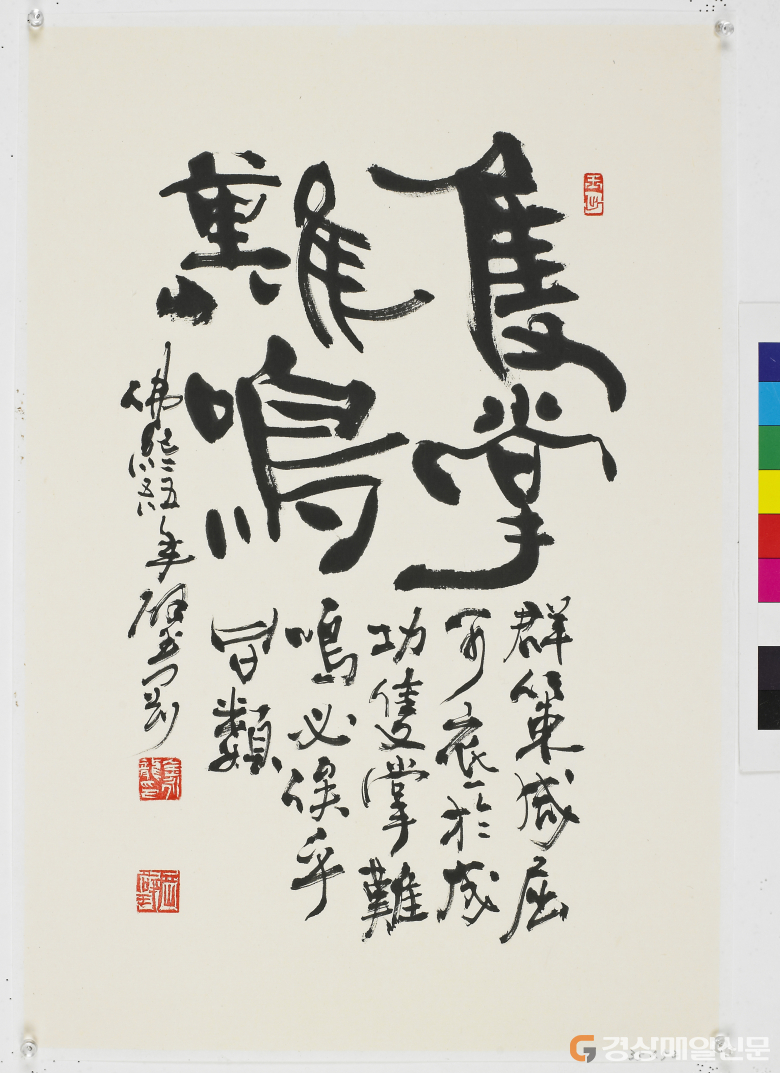 隻掌
難鳴
群策屈
可底於成
功隻掌難
鳴必俟乎
類
佛紀二五年
경상매일신문